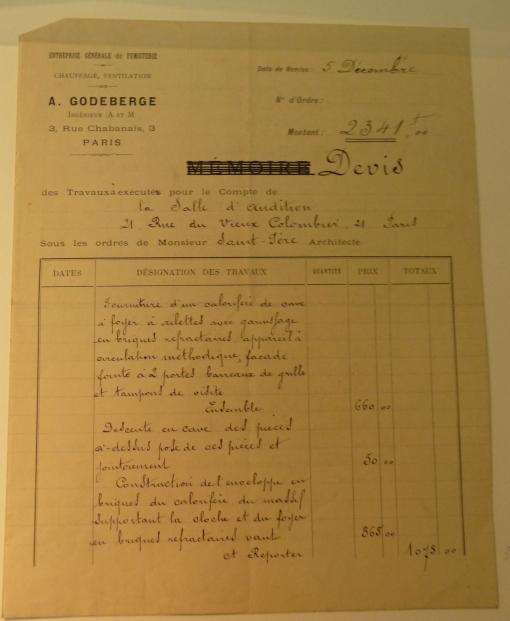 ENTREPRISE GÉNÉRALE de FUMISTERIE
CHAUFFAGE, VENTILATION
A. GODEBERGE
INGÉNIEUR (A ET M
3, Rue Chabanais, 3
PARIS
Date de Remise: 5 Décembre
N° d'Ordre:
Montant: 2341 f 00
MÉMOIRE Devis
des Travaux à exécutés pour le Compte de
la Salle d'audition
21, Rue du Vieux Colombier, 21 Paris
Sous les ordres de Monsieur Saint-Père Architecte.
DATES DÉSIGNATION DES TRAVAUX QUANTITÉ PRIX TOTAUX
Fourniture d'un calorifère de cave
à foyer à ailettes avec garnissage
en briques réfractaires appareil à
circulation méthodique, façade
fonte à 2 portes barreaux de grille
et tampons de visite
Ensemble 660 00
Descente en cave des pièces
ci-dessus pose de ces pièces et
jointoiement 50 00
Construction de l'enveloppe en
briques du calorifère du massif
supportant la cloche et du foyer
en briques réfractaires vaut 365 00
A Reporter 1075 00